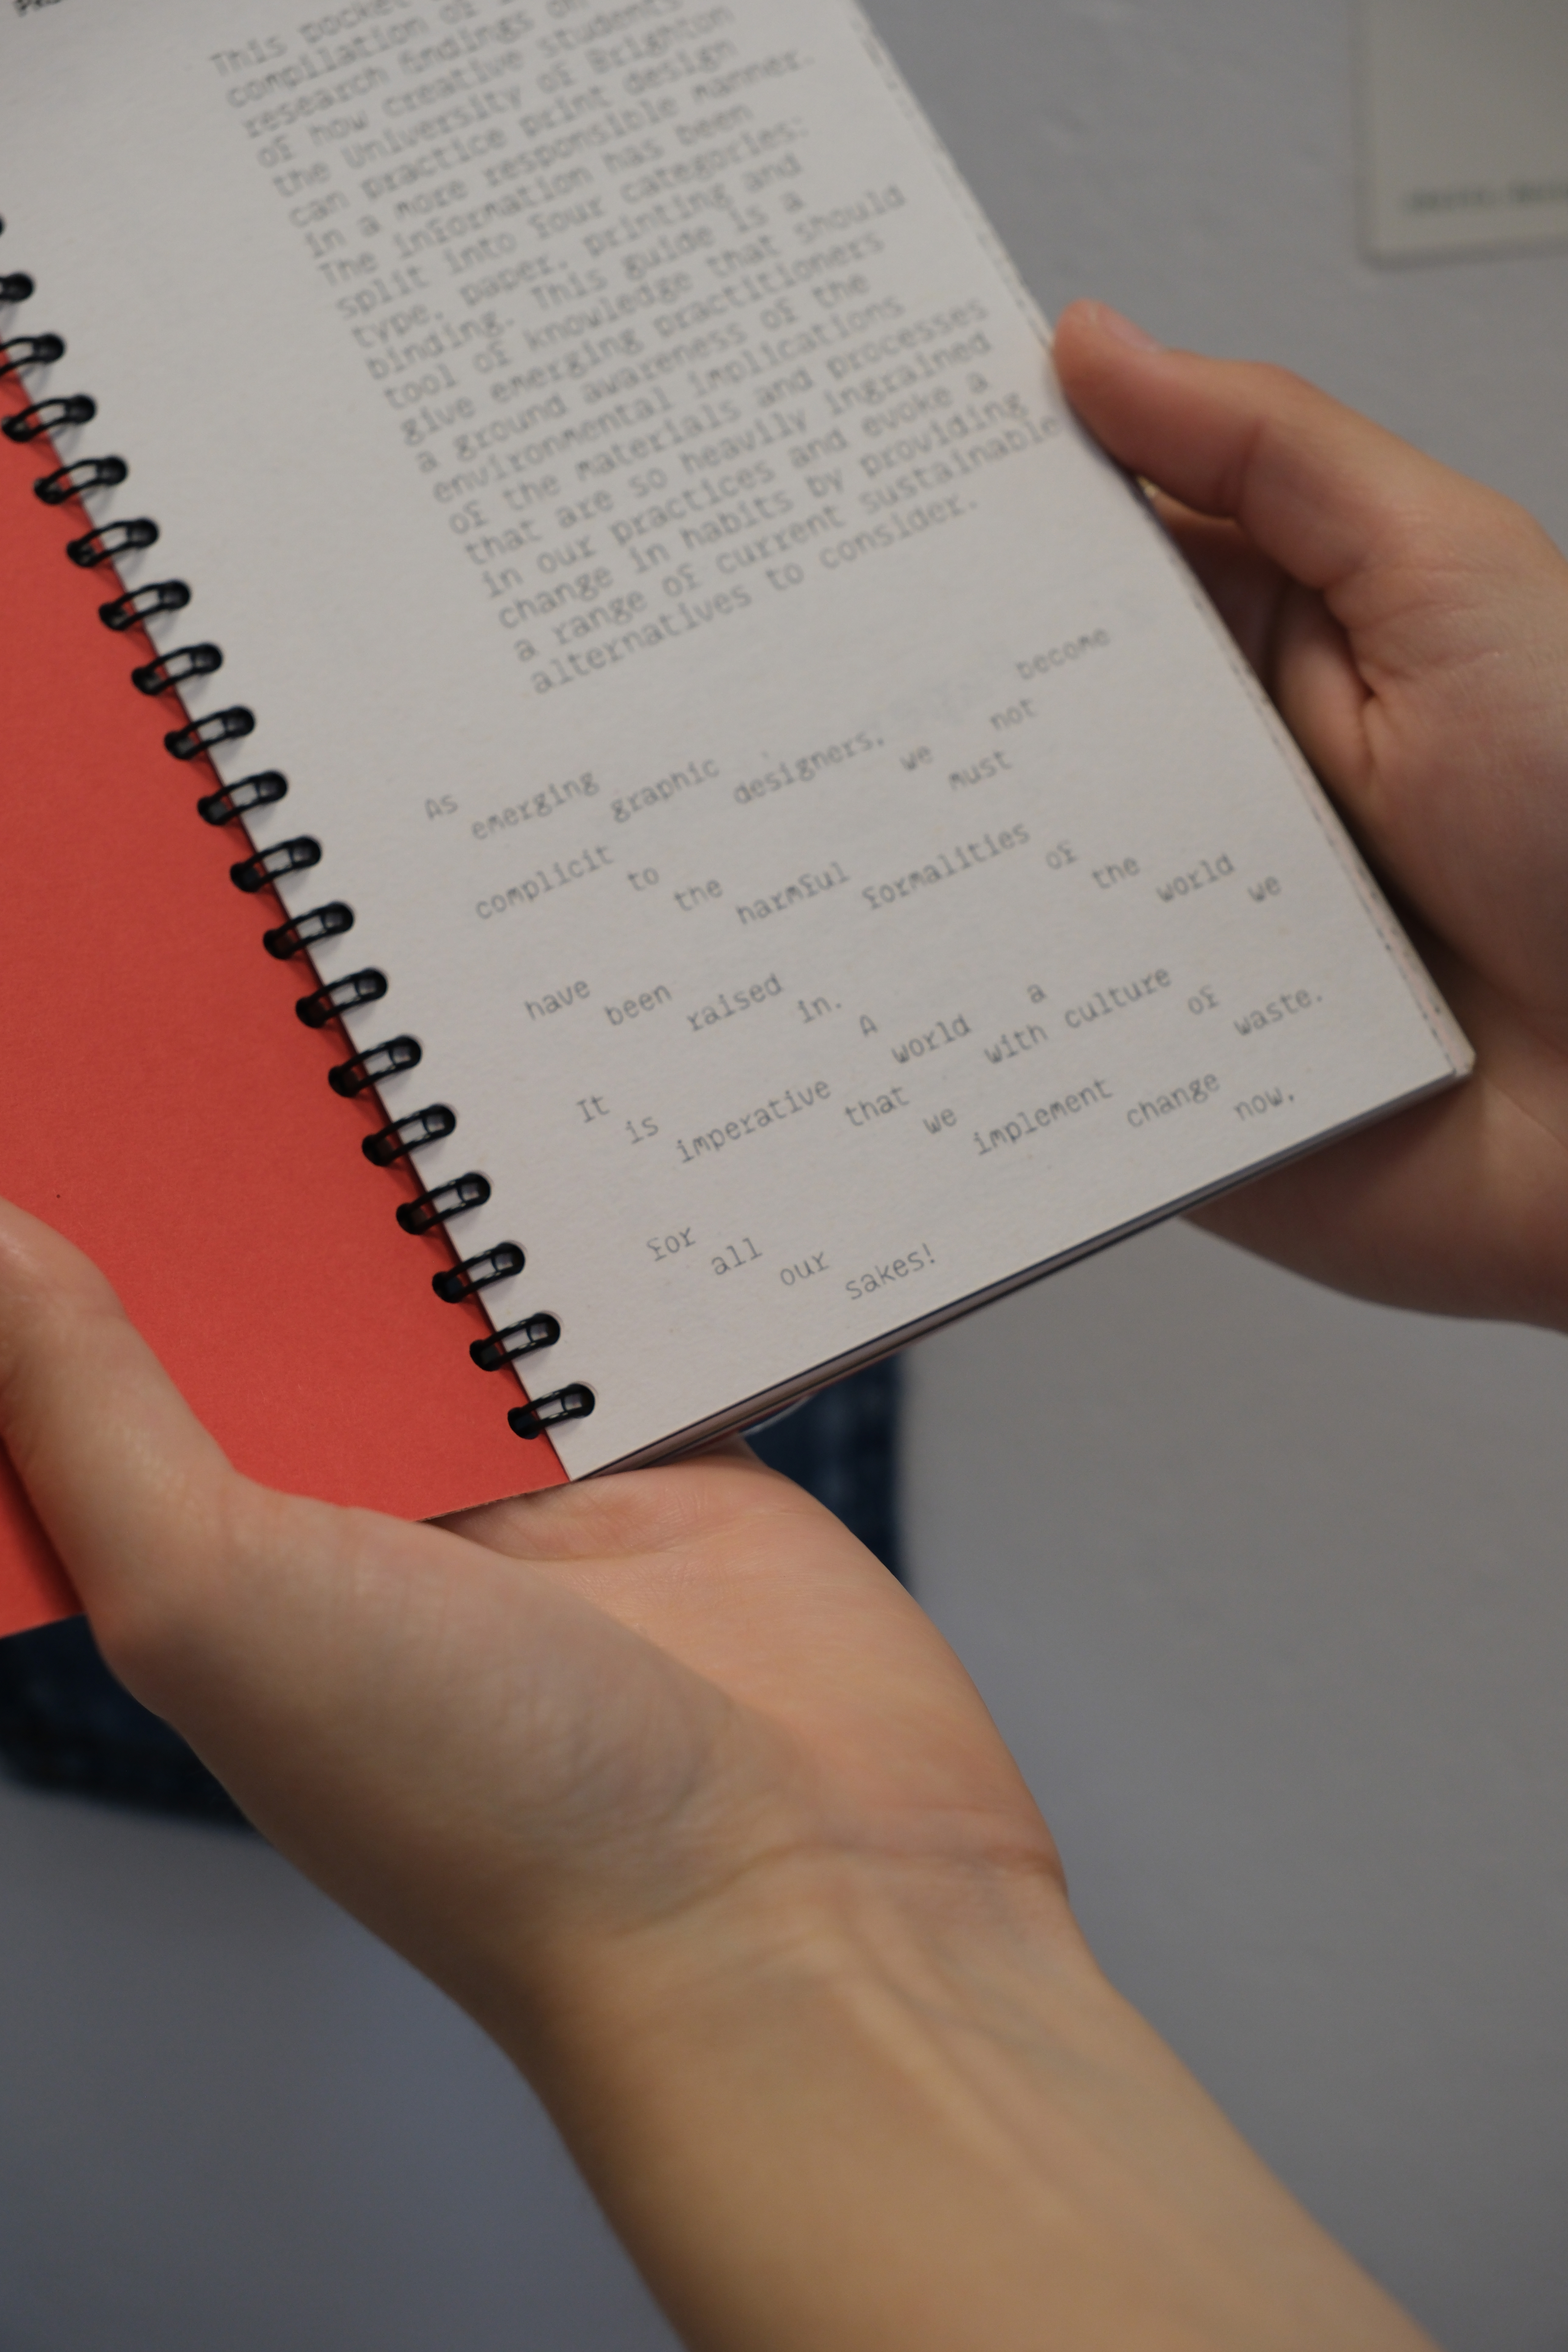 This pocket
compilation of
research findings on
of how creative students
the University of Brighton
can practice print design
in a more responsible manner.
The information has been
split into four categories:
type, paper, printing and
binding. This guide is a
tool of knowledge that should
give emerging practitioners
a ground awareness of the
environmental implications
of the materials and processes
that are so heavily ingrained
in our practices and evoke a
change in habits by providing
a range of current sustainable
alternatives to consider.
As emerging graphic designers, we must not become
complicit to the harmful formalities of the world we
have been raised in. A world with a culture of waste.
It is imperative that we implement change now,
for all our sakes!